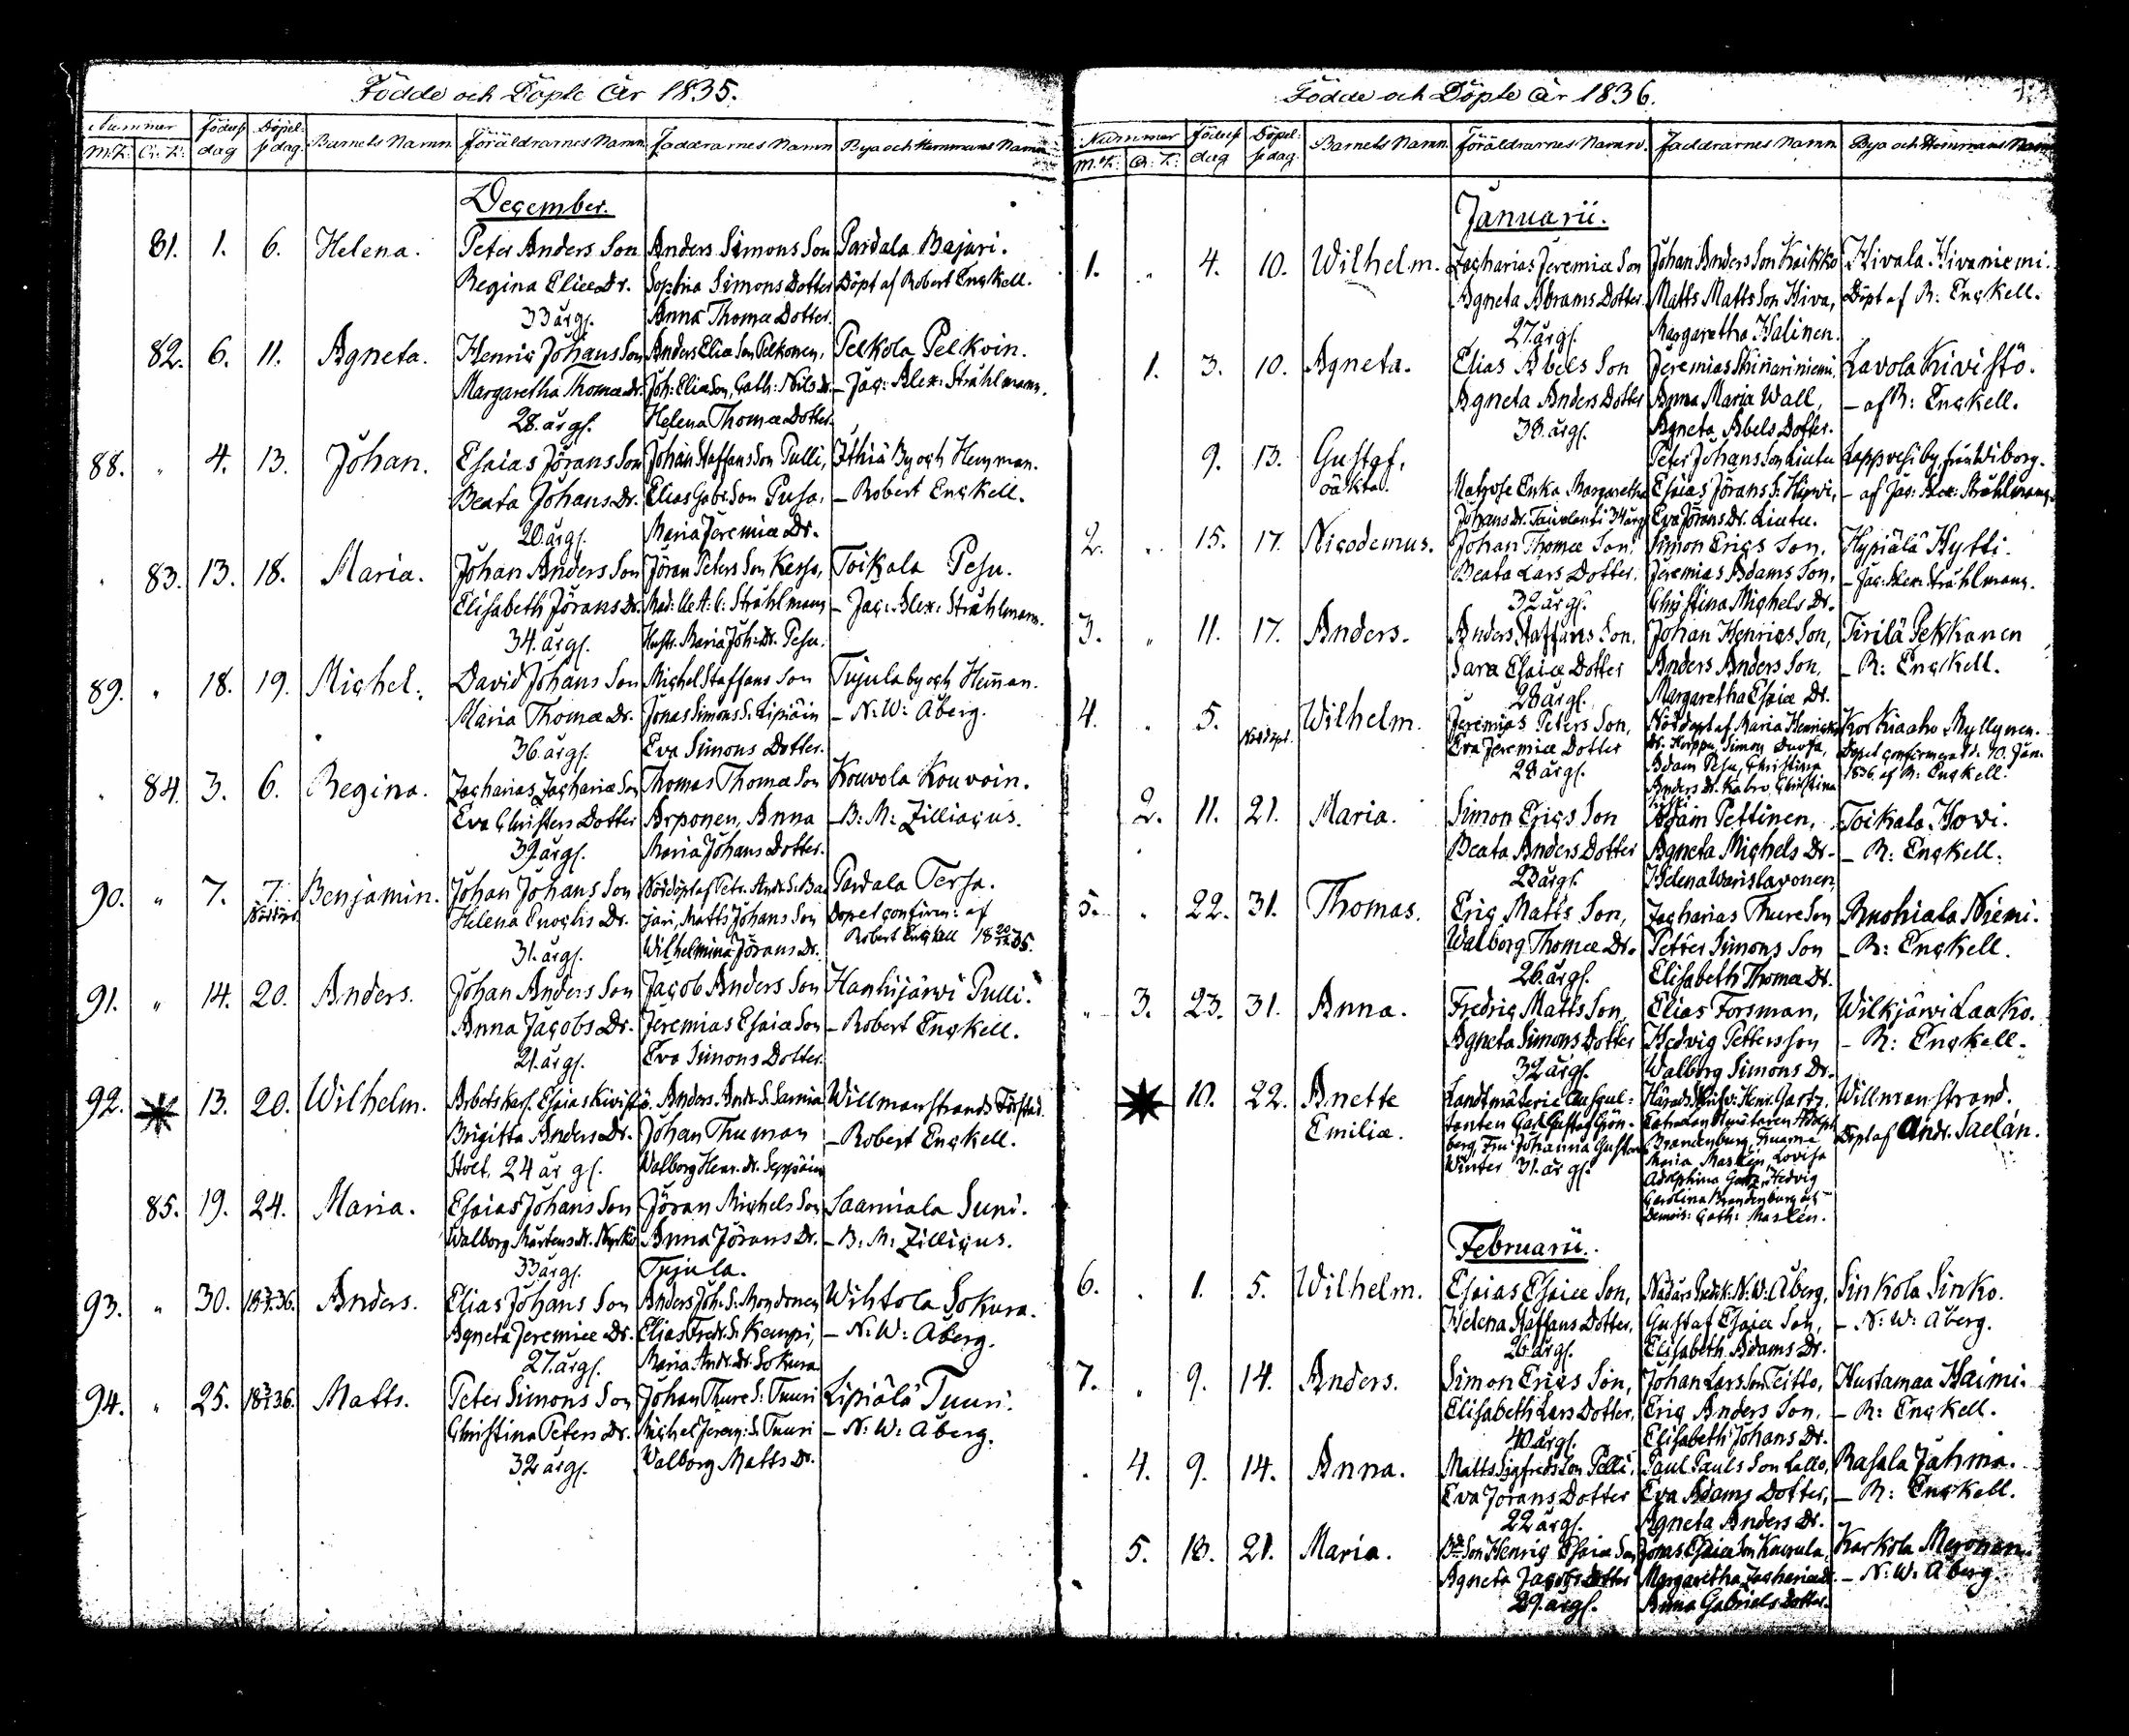 Födde och Döpte År 1835.
Nummer
M.K. Qv.K.
Födelse dag
Döpelse dag
Barnets Namn
Föräldrarnes Namn
Faddrarnes Namn
Bya och Hemmans Namn
December.
81. 1. 6. Helena. Peter Anders Son Anders Simons Son Pardala Bajari.
Regina Eliæ Dr. Sophia Simons Dotter Döpt af Robert Enckell.
33 årgl. Anna Thomæ Dotter.
82. 6. 11. Agneta. Henric Johans Son Anders Eliæ Son Pelkonen, Pelkola Pelkoin.
Margaretha Thomæ Dr. Joh: Eliæ Son, Cath: Nils Dr. – Jac: Alex: Stråhlmann.
28. årgl. Helena Thomæ Dotter.
88. " 4. 13. Johan. Esaias Jörans Son Johan Staffans Son Pulli, Ithiä By och Hemman.
Beata Johans Dr. Elias Gabr. Son Pusa, – Robert Enckell.
20 årgl. Maria Jeremiæ Dr.
83. 13. 18. Maria. Johan Anders Son Jöran Peters Son Toikala Pesu.
Elisabeth Jörans Dr. Stråhlmann – Jac: Alex: Stråhlmann.
34. årgl. Hustr. Maria Joh: Dr. Pesu.
89. " 18. 19. Michel. David Johans Son Michel Staffans Son Tujula by och Hemman.
Maria Thomæ Dr. Jonas Simons S. Lipiäin – N: W: Åberg.
36 årgl. Eva Simons Dotter.
84. 3. 6. Regina. Zacharias Zachariæ Son Thomas Thomæ Son Kouvola Kouvoin.
Eva Christers Dotter Arponen, Anna – B: M: Zilliacus.
39 årgl. Maria Johans Dotter.
90. " 7. 7. Benjamin. Johan Johans Son Nöddöpt af Petr. Andr. S. Ba Pardala Tersa.
Nöddöpt Helena Enochs Dr. jari, Matts Johans Son Döpel confirm: af
31. årgl. Wilhelmina Jörans Dr. Robert Enckell 18 20/12 35.
91. " 14. 20. Anders. Johan Anders Son Jacob Anders Son Hanhijärvi Pulli.
Anna Jacobs Dr. Jeremias Esaiæ Son – Robert Enckell.
21. årgl. Eva Simons Dotter.
92. 13. 20. Wilhelm. Arbetskarl. Esaias Kivistö. Anders Andr. S. Willmanstrands Förstad.
Brigitta Anders Dr. Johan Thuman – Robert Enckell.
24 år gl. Walborg Henr. Dr. Seppäin
85. 19. 24. Maria. Esaias Johans Son Jöran Michels Son Saamiala Suni.
Walborg Mårtens Dr. Anna Jörans Dr. – B: M: Zilliacus.
33 årgl. Tujula.
93. " 30. Anders. Elias Johans Son Anders Joh. S. Wihtola Sokura.
Agneta Jeremiæ Dr. Elias Fredr. S. Kemppi, – N: W: Åberg.
27. årgl. Maria Andr. Dr. Sokura.
94. " 25. Matts. Peter Simons Son Johan Thure S: Tuuri Lipiälä Tuuri.
Christina Peters Dr. Michel Jerem: S. Tuuri – N: W: Åberg.
32 årgl. Walborg Matts Dr.
Födde och Döpte År 1836.
Nummer
M.K. Qv.K.
Födelse dag
Döpelse dag
Barnets Namn
Föräldrarnes Namn.
Faddrarnes Namn
Bya och Hemmans Namn
Januarii.
1. " 4. 10. Wilhelm. Zacharias Jeremiæ Son Johan Anders Son Kaikko Hivala Hivaniemi.
Agneta Abrams Dotter Matts Matts Son Hiva, Döpt af R: Enckell.
27. årgl. Margaretha Halinen.
1. 3. 10. Agneta. Elias Abels Son Jeremias Lavola Kivistö.
Agneta Anders Dotter Anna Maria Wall, – af R: Enckell.
38. årgl. Agneta Abels Dotter.
9. 13. Gustaf, Peter Johans Son Liutu Lappvesi by från Wiborg.
oäkta. Enka Margaretha Esaias Jörans S. – af Jac: Alex: Stråhlmann.
Johans Dr. 34 årgl. Eva Jörans Dr. Liutu.
2. " 15. 17. Nicodemus. Johan Thomæ Son, Simon Erics Son, Hypiälä Hytti.
Beata Lars Dotter, Jeremias Adams Son, – Jac: Alex: Stråhlmann.
32 årgl. Christina Michels Dr.
3. " 11. 17. Anders. Anders Staffans Son, Johan Henrics Son, Tirilä Pekkanen
Sara Esaiæ Dotter Anders Anders Son, – R: Enckell.
28 årgl. Margaretha Esaiæ Dr.
4. " 5. Nöddöpt. Wilhelm. Jeremias Peters Son, Nöddöpt af Maria Henricks Korkiaaho Myllynen.
Eva Jeremiæ Dotter Dr. Simon Döpel confirmerad d. 10. Jan.
28 årgl. Adam Pesu, Christina 1836, af R: Enckell.
Anders Dr. Christina
2. 11. 21. Maria. Simon Erics Son Adam Pettinen, Toikala Howi.
Beata Anders Dotter Agneta Michels Dr. – R: Enckell.
23 årgl. Helena
5. " 22. 31. Thomas. Eric Matts Son, Zacharias Thure Son Ruohiala Niemi.
Walborg Thomæ Dr. Petter Simons Son – R: Enckell.
26 årgl. Elisabeth Thomæ Dr.
" 3. 23. 31. Anna. Fredric Matts Son, Elias Forsman, Wilkjärvi Laako.
Agneta Simons Dotter Hedvig Pettersson – R: Enckell.
32 årgl. Walborg Simons Dr.
10. 22. Anette Landtmäterie Auscul= Härads Henr. Gartz, Willmanstrand.
Emiliæ. tanten Carl Gustaf Grön- Adolph Döpt af Andr. Saelán.
berg, Fru Johanna Gustava Brandenburg, Fruarna
Winter 31. år gl. Maria Maslén, Lovisa
Adolphina Gartz, Hedvig
Carolina Brandenburg och
Demois: Cath: Maslén.
Februarii.
6. " 1. 5. Wilhelm. Esaias Esaiæ Son, N: W: Åberg, Sinkola Sinko.
Helena Staffans Dotter, Gustaf Esaiæ Son, – N: W: Åberg.
26 årgl. Elisabeth Adams Dr.
7. " 9. 14. Anders. Simon Erics Son, Johan Lars Son Teitto, Hurtamaa Haimi.
Elisabeth Lars Dotter, Eric Anders Son, – R: Enckell.
40 årgl. Elisabeth Johans Dr.
4. 9. 14. Anna. Matts Sigfreds Son Pelli, Paul Pauls Son Lallo, Rasala Jähmä.
Eva Jörans Dotter Eva Adams Dotter, – R: Enckell.
22 årgl. Agneta Anders Dr.
5. 18. 21. Maria. Henric Esaiæ Son Jonas Esaiæ Son Karkola
Agneta Jacobs Dotter Margaretha Zachariæ Dr. – N: W: Åberg.
29. årgl. Anna Gabriels Dotter.